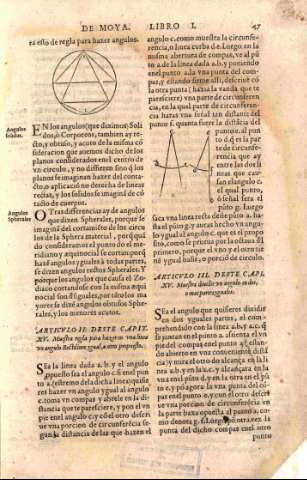 DE MOYA. LIBRO I. 47
ra esto de regla para hazer angulos.
Angulos solidos.
EN los angulos (que diximos) Soli
dos, o Corporeos, tambien ay re-
cto, y obtuso, y acuto de la misma có
sideracion que auemos dicho de los
planos considerados en el centro de
vn circulo, y no diffieren sino q̃ los
planos se imaginan hazer del contac
to, o aplicacion no derecha de lineas
rectas, y los solidos se imaginã de có
tacto de cuerpos.
Angulos Spherales
OTras differencias ay de angulos
que dizen Spherales, porque se
imaginã del cortamiẽto de los circu
los de la Sphera material, porque
do consideramos el punto do el me-
ridiano y equinoctial se cortan, porq̃
haze angulos yguales à todas partes,
se dizen angulos rectos Spherales. Y
porque los angulos que causa el Zo-
diaco cortandose con la misma equi
noctial son desiguales, por tãto los ma
yores se dirã angulos obtusos Sphe-
rales, y los menores acutos.
ARTICVLO II. DESTE CAPIT.
XV. Muestra regla para hazer en vna linea
vn angulo Rectilineo ygual, a otro propuesto.
SEa la linea dada a. b. y el angulo
propuesto sea el angulo c. si en el pun
to a. (estremo de la dicha linea) quisie
res hazer vn angulo ygual al angulo
c. toma vn compas y abrele en la di-
stancia que te pareciere, y pon el vn
pie en el angulo c. y có el otro descri
ue vna porcion de circunferẽcia se-
gun la distancia de las que hazen el
angulo c. como muestra la circunfe-
rencia, o linea curba d. e. Luego en la
misma abertura de compas, ve al pũ
to a. de la linea dada a. b. y poniendo
en el punto a. la vna punta del com-
pas, y estando firme alli, describe có
la otra punta (hazia la vanda que te
pareciere) vna parte de circunferen-
cia, en la qual parte de circunferen-
haras vna señal tan distante del
punto f. quanta fuere la distãcia del
punto e. al pun
to d. q̃ es la par
te de circunfe-
rencia que ay
entre las dos li
neas que cau-
san el angulo c.
el qual punto,
o señal sera el
pũto g. luego
saca vna linea recta desde el pũto a. ha
sta el pũto g. y auras hecho vn angu-
lo ygual al angulo c. que es el propo
sito, como se prueua por la octaua del
primero, porque el vno y el otro tie
nẽ ygual basis, o porciõ de circulo.
ARTICVLO III. DESTE CAPI.
XV. Muestra diuidir vn angulo en dos,
o mas partes yguales.
SEa el angulo que quisieres diuidir
en dos yguales partes, el com-
prehendido con la linea a. b. y a. c. q̃
se juntan en el punto a. assienta el vn
pie del compas en el punto a. y estãdo
abierto en vna conueniente distã
cia y muestre el otro do alcança en la li
nea a. b. y en la a. c. y alcançara en la
vna en el pũto d. y en la otra en el pũ
to e. y agora la vna punta del có-
pas en el punto e. (o en el d.) y con
la otra descriue vna circunferencia en
la parte baxa opuesta al punto a. co-
mo denota g. f. Luego põ otra vez la
punta del dicho compas en el otro
punto